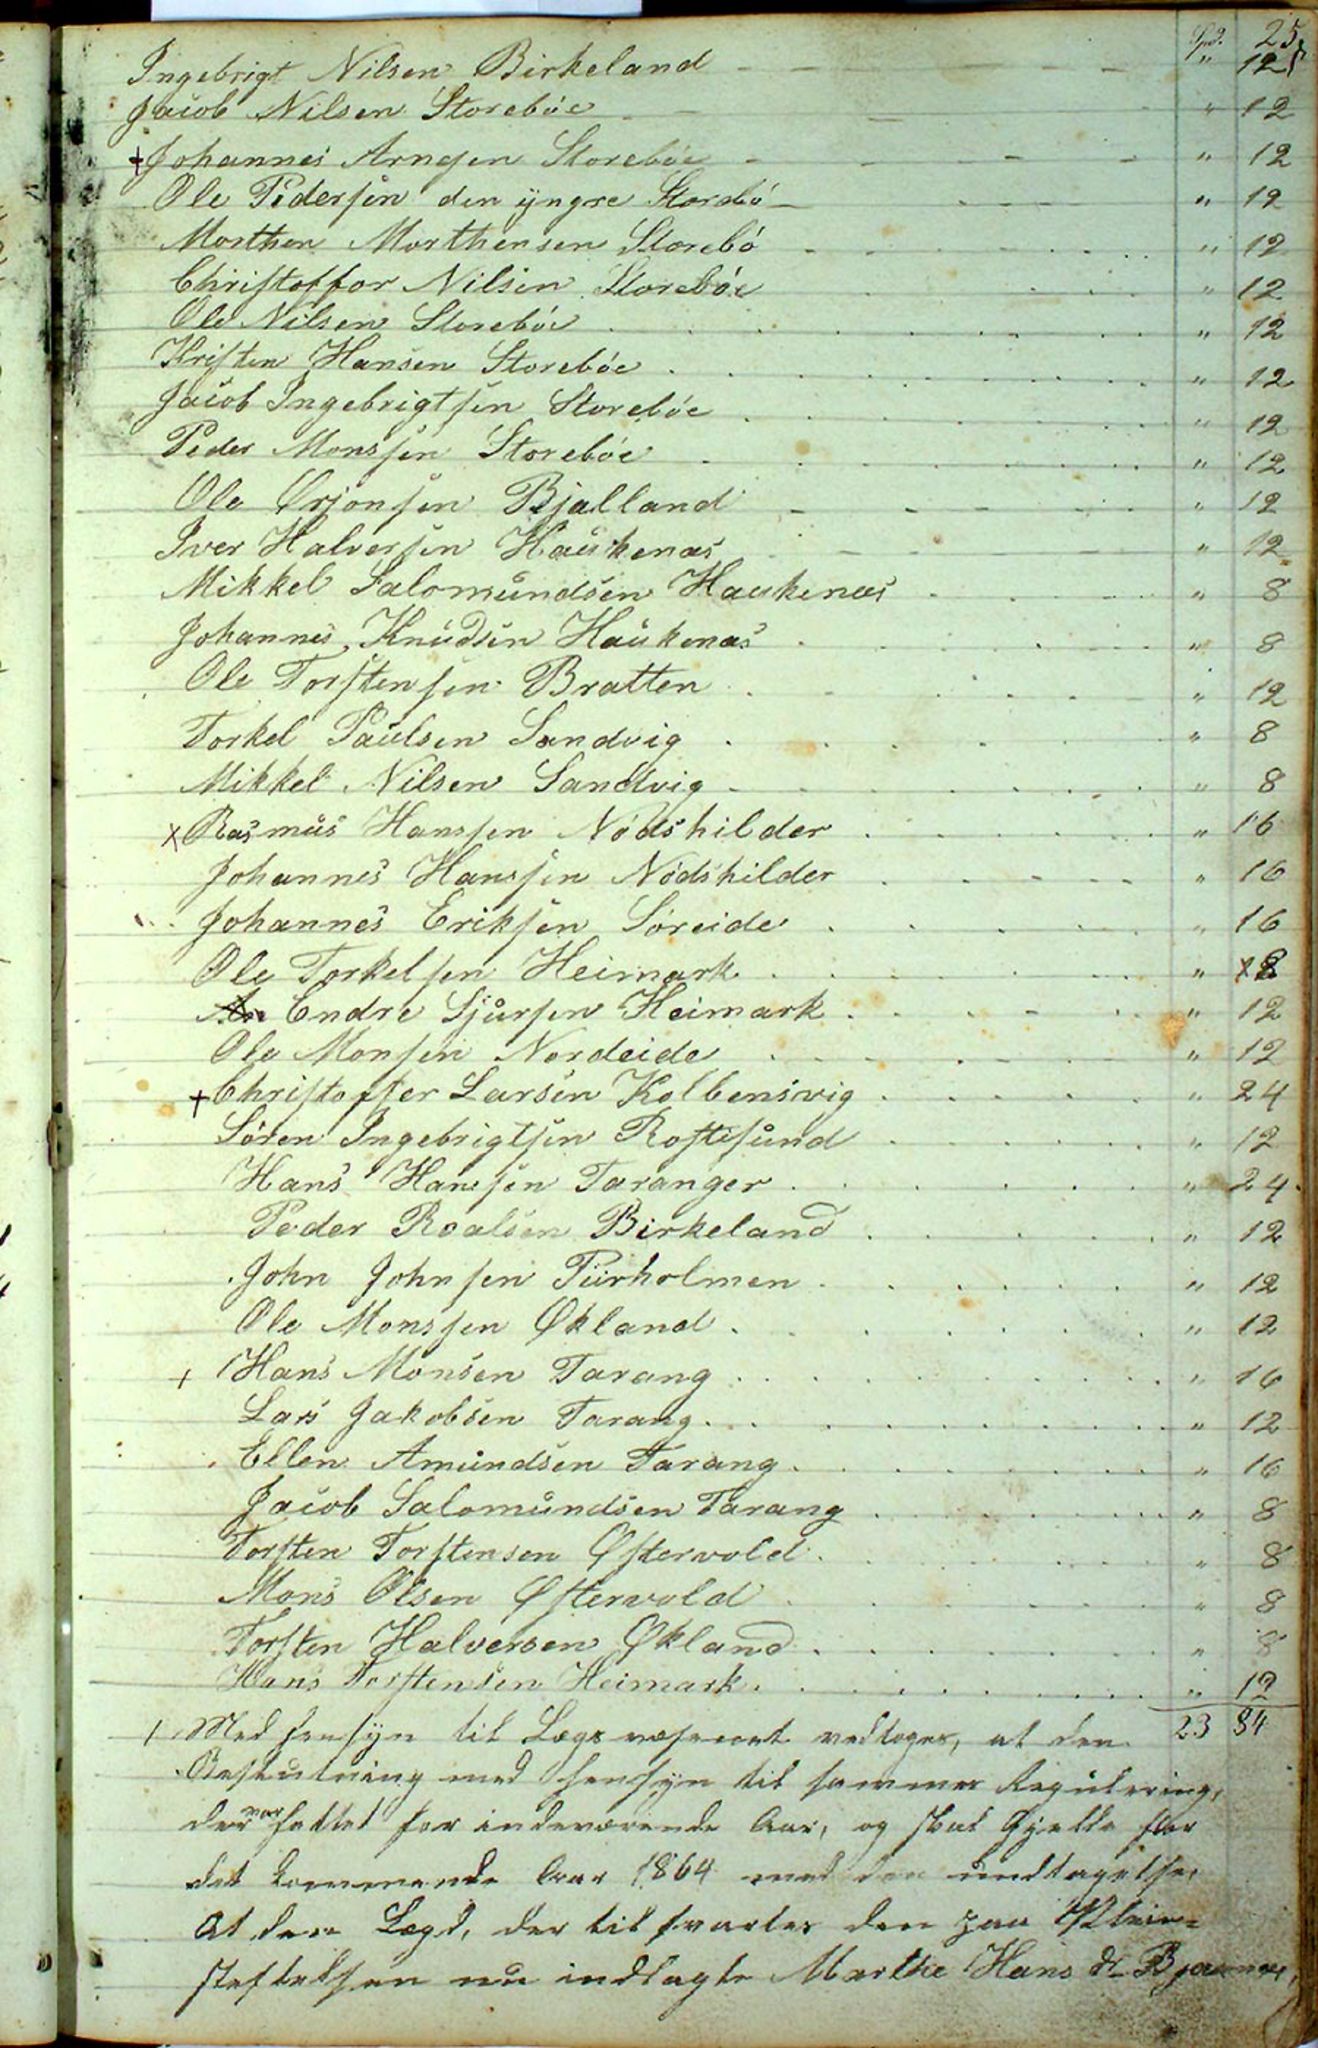 Spd. 25
Ingebrigt Nilsen Birkeland - - - " 12
Jacob Nilsen Storebøe - - " 12
+ Johannes Arnesen Storebøe - - - - " 12
Ole Pedersen den yngre Storebø - - - " 12
Morthen Morthensen Storebø - - . . " 12
Christoffor Nilsen Storebøe . . . " 12
Ole Nilsen Storebøe . . . . " 12
Kristen Hansen Storebøe . . . . " 12
Jacob Ingebrigtsen Storebøe . . . . " 12
Peder Monssen Storebøe . . . . " 12
Ole Ørjonsen Bjalland - - - " 12
Iver Halversen Haukenæs - - - " 12
Mikkel Salomundsen Haukenæs - . . . " 8
Johannes Knudsen Haukenæs . . . . " 8
Ole Torstensen Bratten . . . . " 12
Torkel Paulsen Sandvig . . . . " 8
Mikkel Nilsen Sandvig . . . . " 8
x Rasmus Hanssen Nødshilder . . . . " 16
Johannes Hanssen Nødshilder . . . . " 16
Johannes Eriksen Søreide . . . . " 16
Ole Torkelsen Heimark . . . . " 8
Endre Sjursen Heimark . . . . " 12
Ole Monsen Nordeide . . . . " 12
+ Christoffer Larsen Kolbensvig . . . . " 24
Søren Ingebrigtsen Rostesund . . . . " 12
Hans Hanssen Taranger . . . . " 24
Peder Roalsen Birkeland . . . . " 12
John Johnsen Purholmen . . . . " 12
Ole Monssen Økland . . . . " 12
+ Hans Monsen Tarang . . . . " 16
Lars Jakobsen Tarang . . . . " 12
Ellen Amundsen Tarang . . . . " 16
Jacob Salomundsen Tarang . . . . " 8
Torsten Torstensen Østervold . . . . " 8
Mons Olsen Østervold . . . . " 8
Torsten Halversen Økland . . . . " 8
Hans Torstensen Heimark . . . . " 12
Med Hensyn til Lægsvæsenet vedtoges, at den 23 84
Beslutning med Hensyn til sammes Regulering,
der var fattet for indeværende Aar, og skal gjelde for
det kommende Aar 1864 med den undtagelse,
At den Lægd, der tilsvarles den paa Pleie-
stiftelsen nu indlagte Marthe Hans Dr